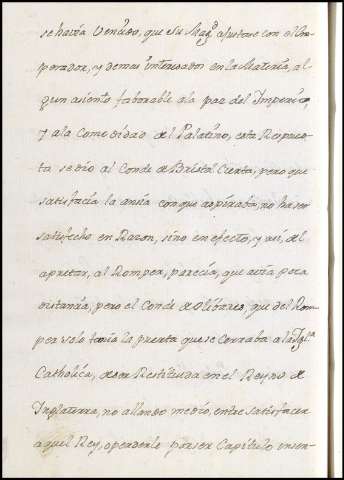 se havia Vencido, que Su Mag.d ajustase con el Em-
perador, y demas interesados en la Materia, al-
gun asiento faborable a la paz del Imperio,
y a la Comodidad del Palatino, esta Respues-
ta se dio al Conde de Bristol Cierta, pero que
satisfacia la ansia con que aspiraba, no ha ser
satisfecho en Razon, sino en efecto, y asi, del
apretar, al Romper, parecia, que avia poca
distancia, pero el Conde de Olibares, que del Rom-
per solo temia la puerta que se Cerraba a la Igl.a
Catholica, de ser Restituida en el Reyno de
Inglaterra, no allando medio, entre satisfacer
a aquel Rey, o perderle por ser Capitulo insen-